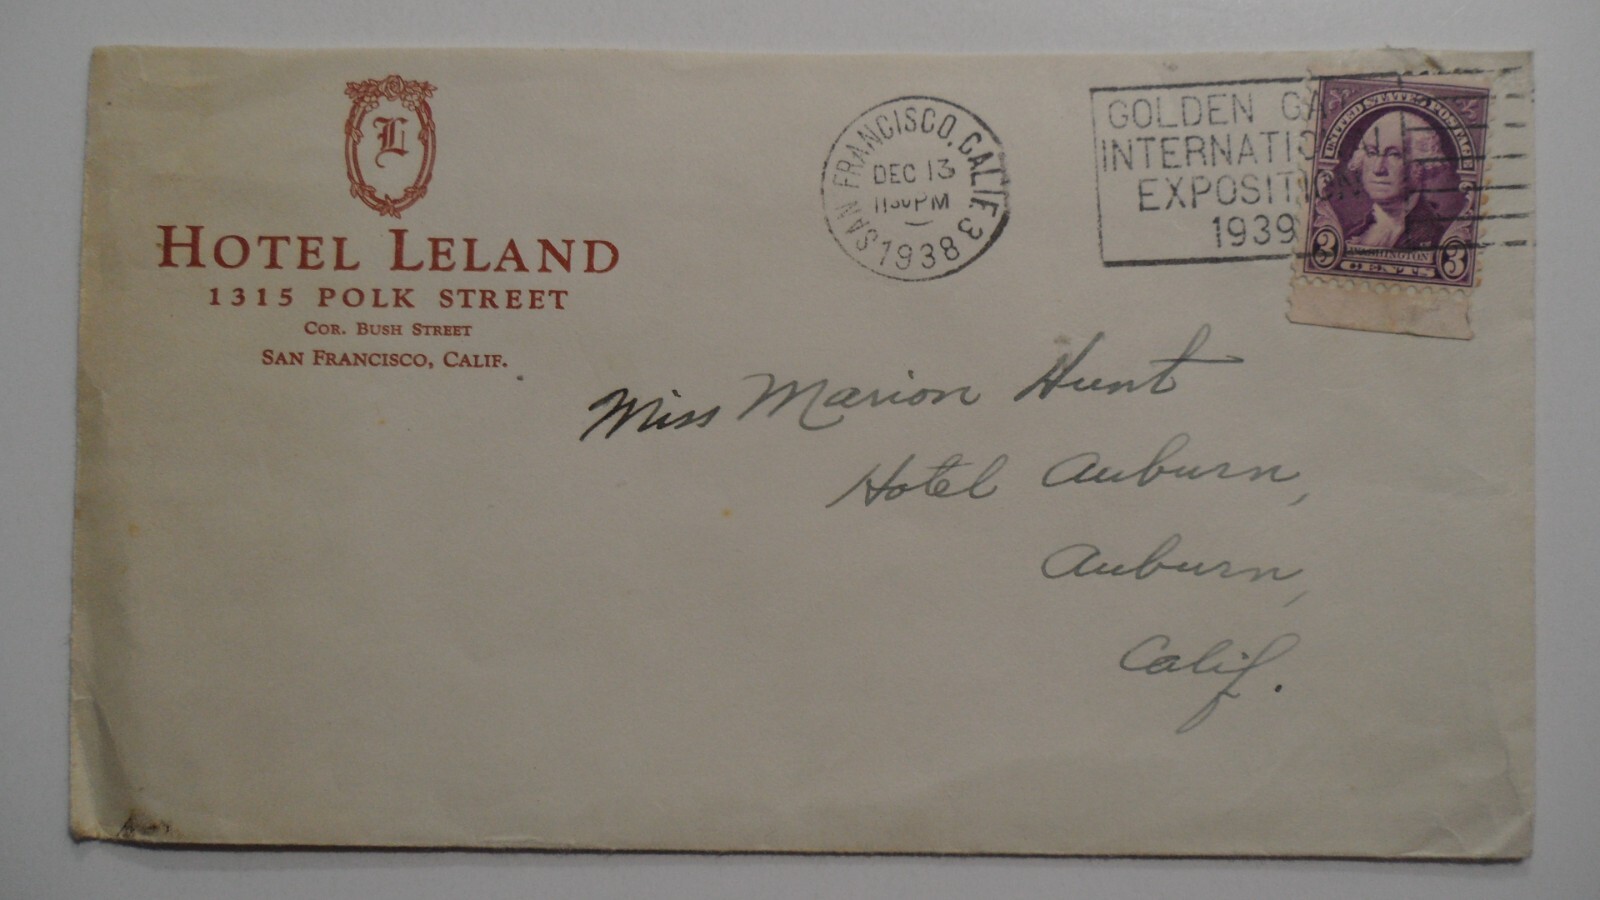 L
HOTEL LELAND
1315 POLK STREET
COR. BUSH STREET
SAN FRANCISCO, CALIF.
SAN FRANCISCO, CALIF. 3
DEC 13
1130 PM
1938
GOLDEN GA
INTERNATIO
EXPOSITION
1939
UNITED STATES POSTAGE
WASHINGTON
3 CENTS 3
Miss Marion Hunt
Hotel Auburn,
Auburn,
Calif.